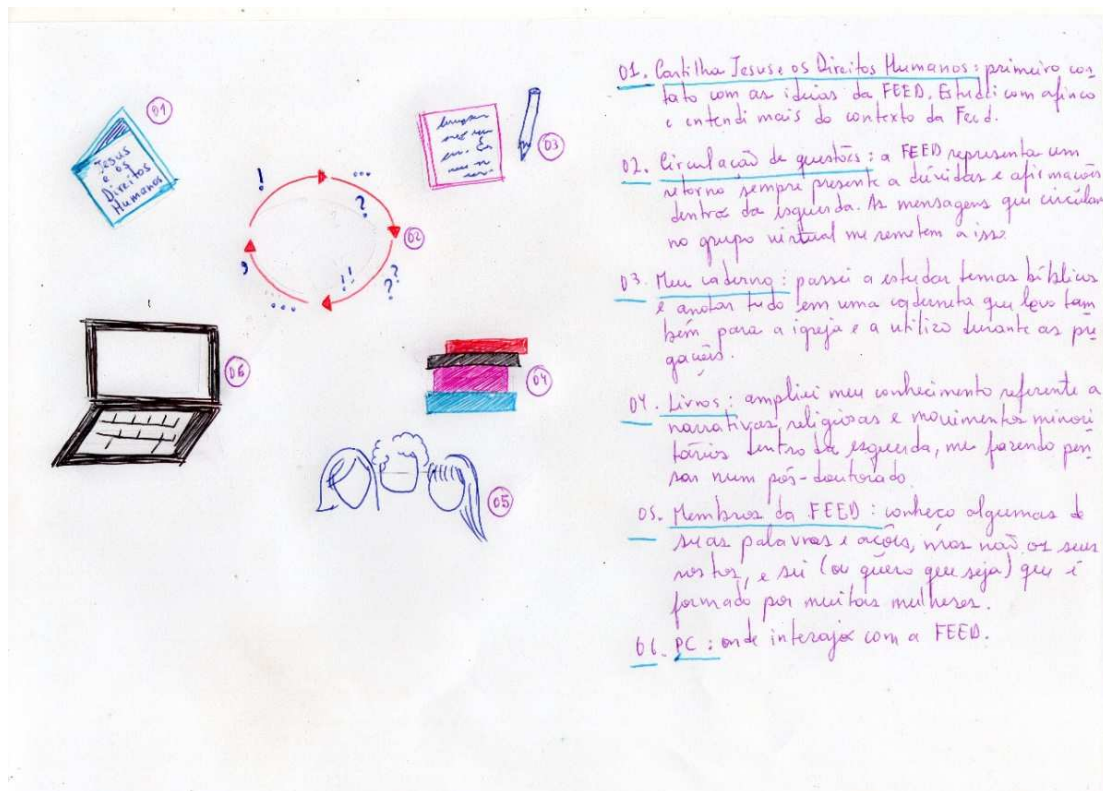 01
Jesus
e os
Direitos
Humanos
!
...
?
02
??
?
!!
...
,
03
04
05
06
01. Cartilha Jesus e os Direitos Humanos: primeiro con
tato com as ideias da FEED. Estudei com afinco
e entendi mais do contexto da Feed.
02. Circulação de questões: a FEED representa um
retorno sempre presente a dúvidas e afirmações
dentro da esquerda. As mensagens que circulam
no grupo virtual me remetem a isso.
03. Meu caderno: passei a estudar temas bíblicos
e anotar tudo em uma caderneta que levo tam
bém para a igreja e a utilizo durante as pre
gações.
04. Livros: ampliei meu conhecimento referente a
narrativas religiosas e movimentos minori
tários dentro da esquerda, me fazendo pen
sar num pós-doutorado.
05. Membros da FEED: conheço algumas de
suas palavras e ações, mas não os seus
rostos, e sei (ou quero que seja) que é
formado por muitas mulheres.
06. PC: onde interajo com a FEED.